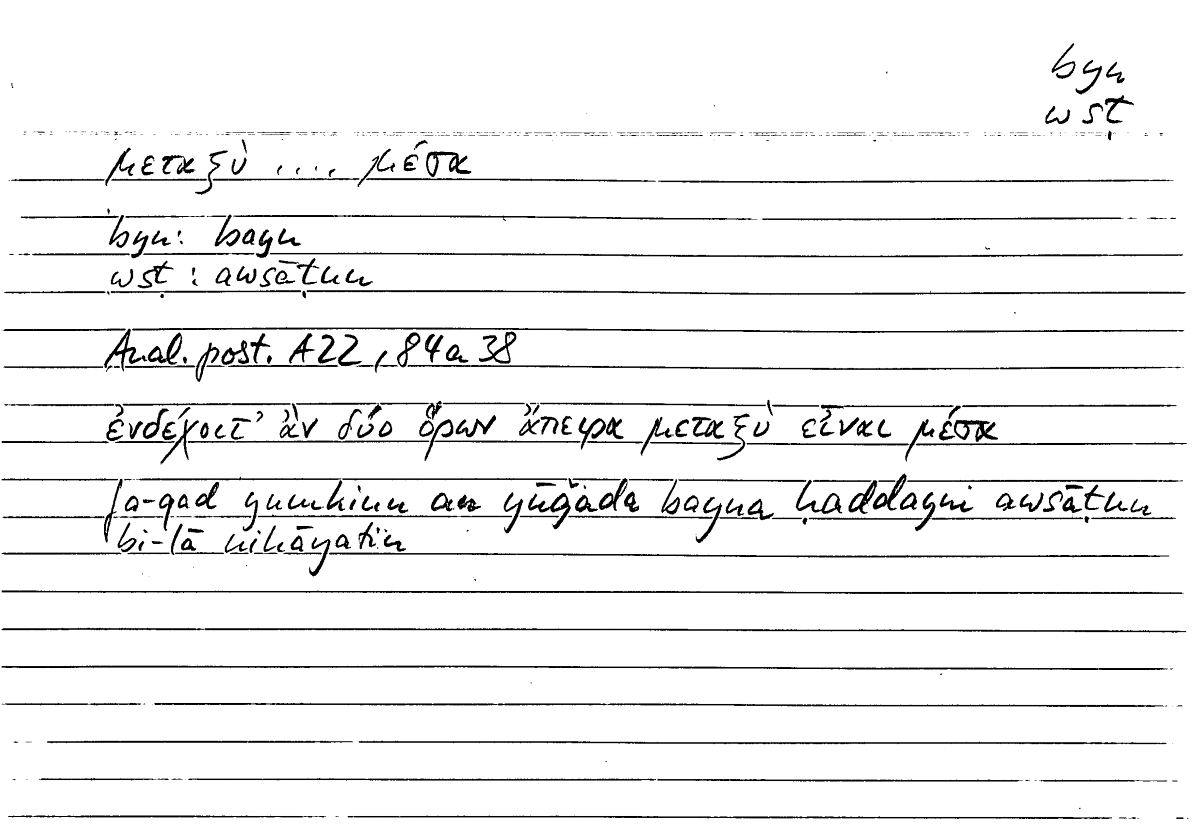 byn
wsṭ
μεταξὺ .... μέσα
byn: bayn
wsṭ : awsāṭun
Anal. post. A22, 84a38
ἐνδέχοιτ' ἂν δύο ὅρων ἄπειρα μεταξὺ εἶναι μέσα
fa-qad yumkinu an yūǧada bayna ḥaddayni awsāṭun
bi-lā nihāyatin